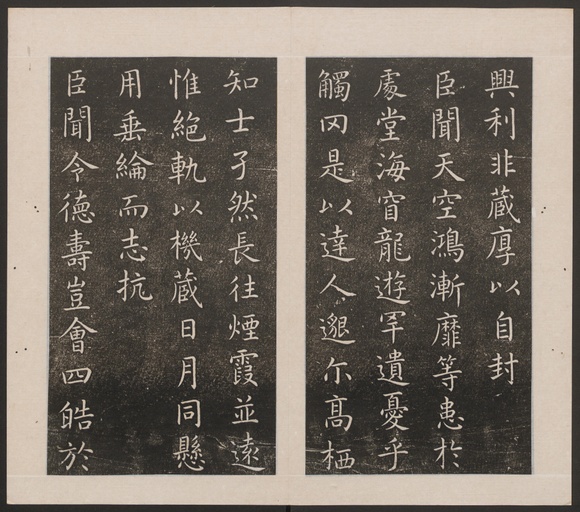 興利非蔵厚以自封
臣聞天空鴻漸靡等患於
處堂海窅龍遊罕遺憂乎
觸罔是以達人邈尒髙栖
知士孑然長往煙霞並遠
惟絶軌以機蔵日月同懸
用垂綸而志抗
臣聞令徳壽豈會四皓於